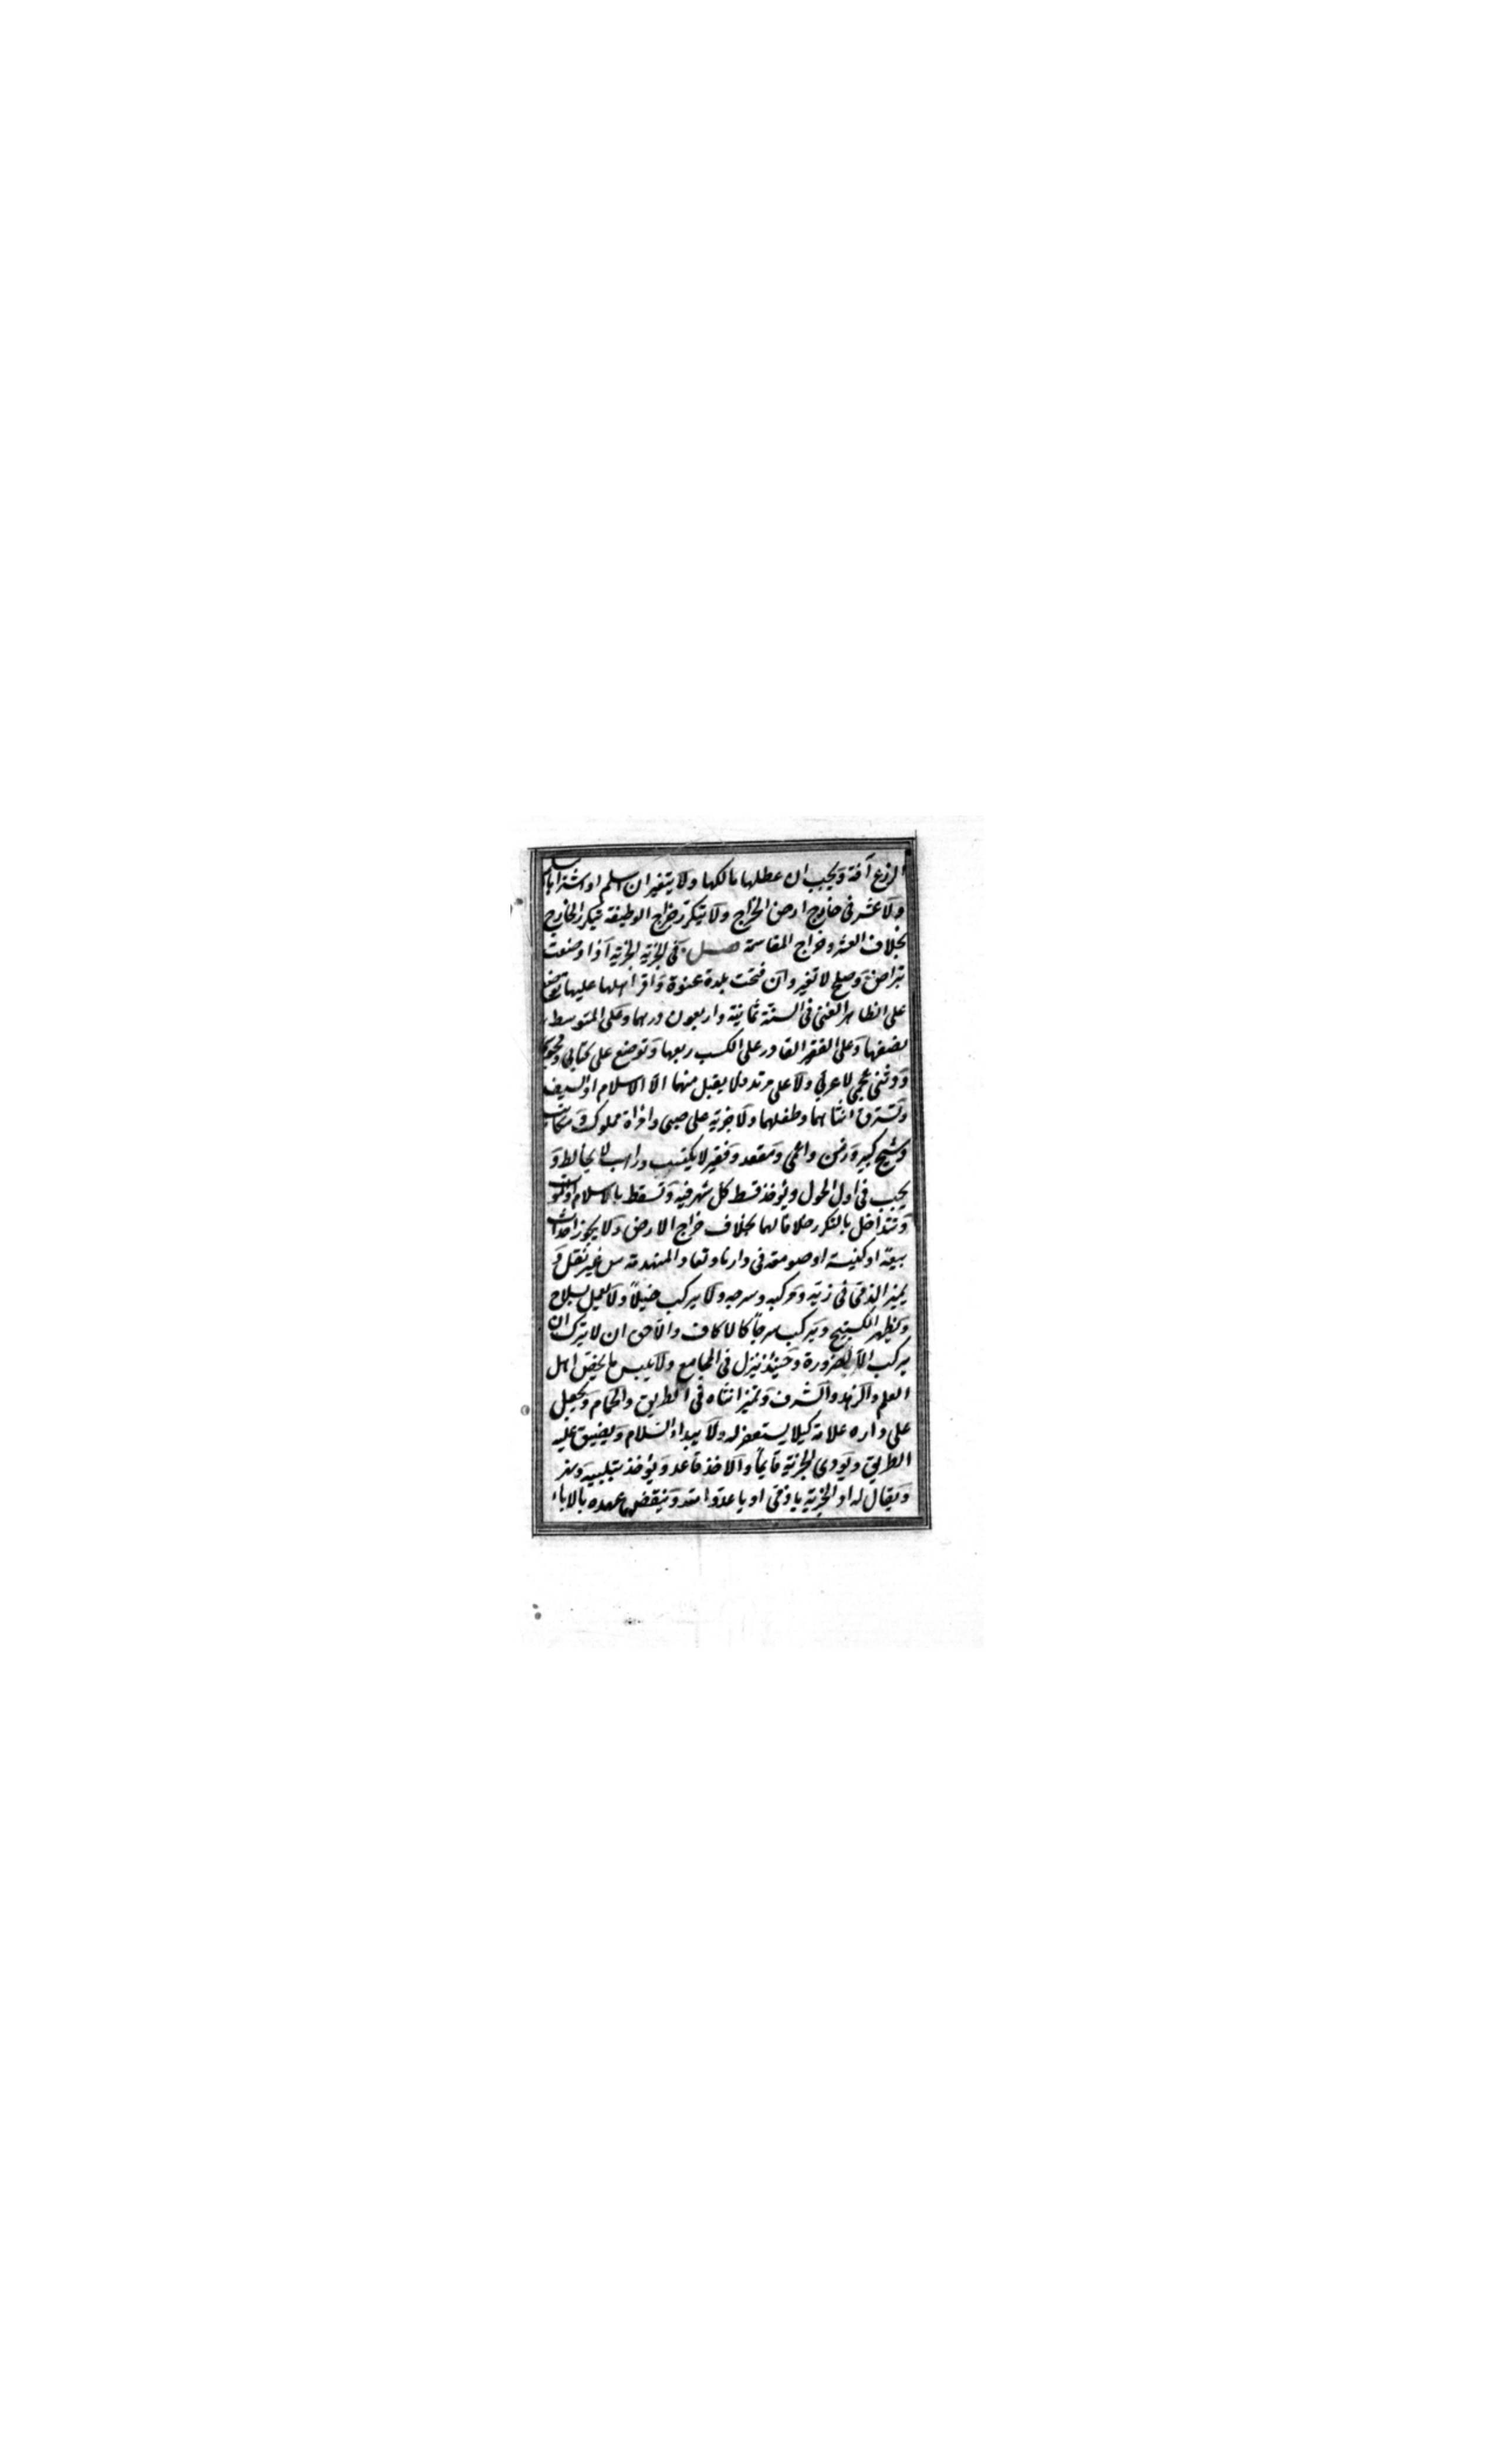 الزرع آفة ويجب ان عطلها مالكها ولا يتغير ان اسلم او اشتراها مسلم
ولا عشر فى خارج ارض الخراج ولا يتكرر خراج الوظيفة بتكرر الخارج
بخلاف العشر وخراج المقاسمة فصل فى الجزية الجزية اذا وضعت
بتراض وصلح لا تغير وان فتحت بلدة عنوة واقر اهلها عليها توضع
على الظاهر الغنى فى السنة ثمانية واربعون درهما وعلى المتوسط
نصفها وعلى الفقير القادر على الكسب ربعها وتوضع على كتابى ومجوسى
ووثنى عجمى لا عربى ولا على مرتد ولا يقبل منهما الا الاسلام او السيف
وتسترق انثاهما وطفلهما ولا جزية على صبى وامراة ومملوك ومكاتب
وشيخ كبير وزمن واعمى ومقعد وفقير لا يكتسب وراهب لا يخالط و
يجب فى اول الحول ويؤخذ قسط كل شهر فيه وتسقط بالاسلام او الموت
وتتداخل بالتكرر خلافا لهما بخلاف خراج الارض ولا يجوز احداث
بيعة او كنيسة او صومعة فى دارنا وتعاد المنهدمة من غير نقل و
يميز الذمى فى زيه ومركبه وسرجه ولا يركب خيلا ولا يعمل بسلاح
ويظهر الكستيج ويركب سرجا كالاكاف والاحق ان لا يترك ان
يركب الا لضرورة وحينئذ ينزل فى المجامع ولا يلبس ما يخص اهل
العلم والزهد والشرف وتميز انثاه فى الطريق والحمام ويجعل
على داره علامة كيلا يستغفر له ولا يبداء بالسلام ويضيق عليه
الطريق ويودى الجزية قايما والآخذ قاعد ويؤخذ بتلبيبه ويهز
ويقال له اد الجزية يا ذمى او يا عدو الله وينتقض عهده بالاباء